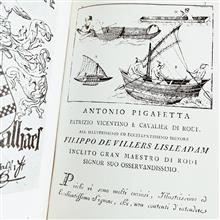 alhael
ANTONIO PIGAFETTA
PATRIZIO VICENTINO E CAVALIER DI RODI.
ALL' ILLUSTRISSIMO ED ECCELLENTISSIMO SIGNORE
FILIPPO DE VILLERS LISLEADAM
INCLITO GRAN MAESTRO DI RODI
SIGNOR SUO OSSERVANDISSIMO.
Perchè vi sono molti curiosi, Illustrissimo ed
Eccellentissimo Signore, che, non contenti d'intendere